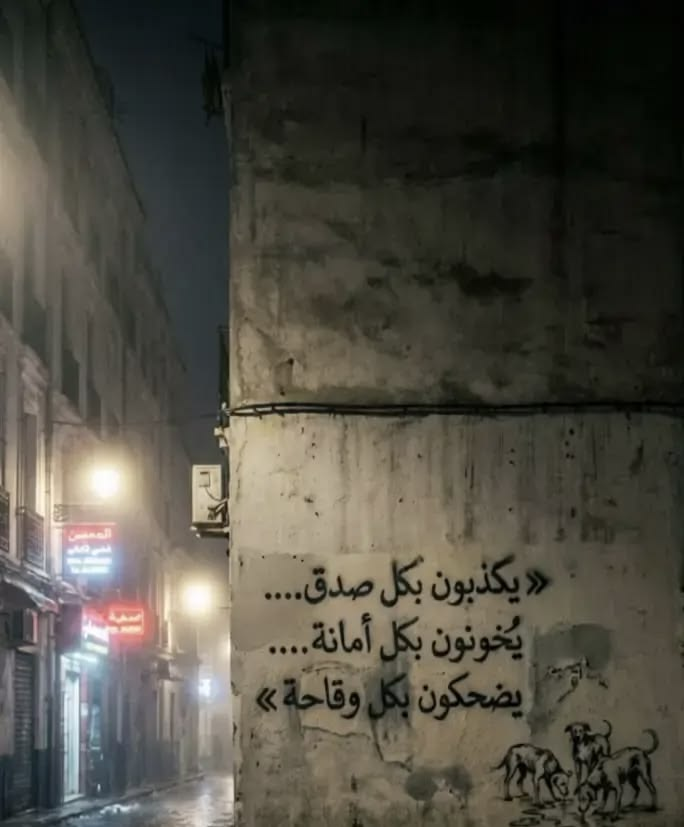 « يكذبون بكل صدق....
يُخونون بكل أمانة....
يضحكون بكل وقاحة »